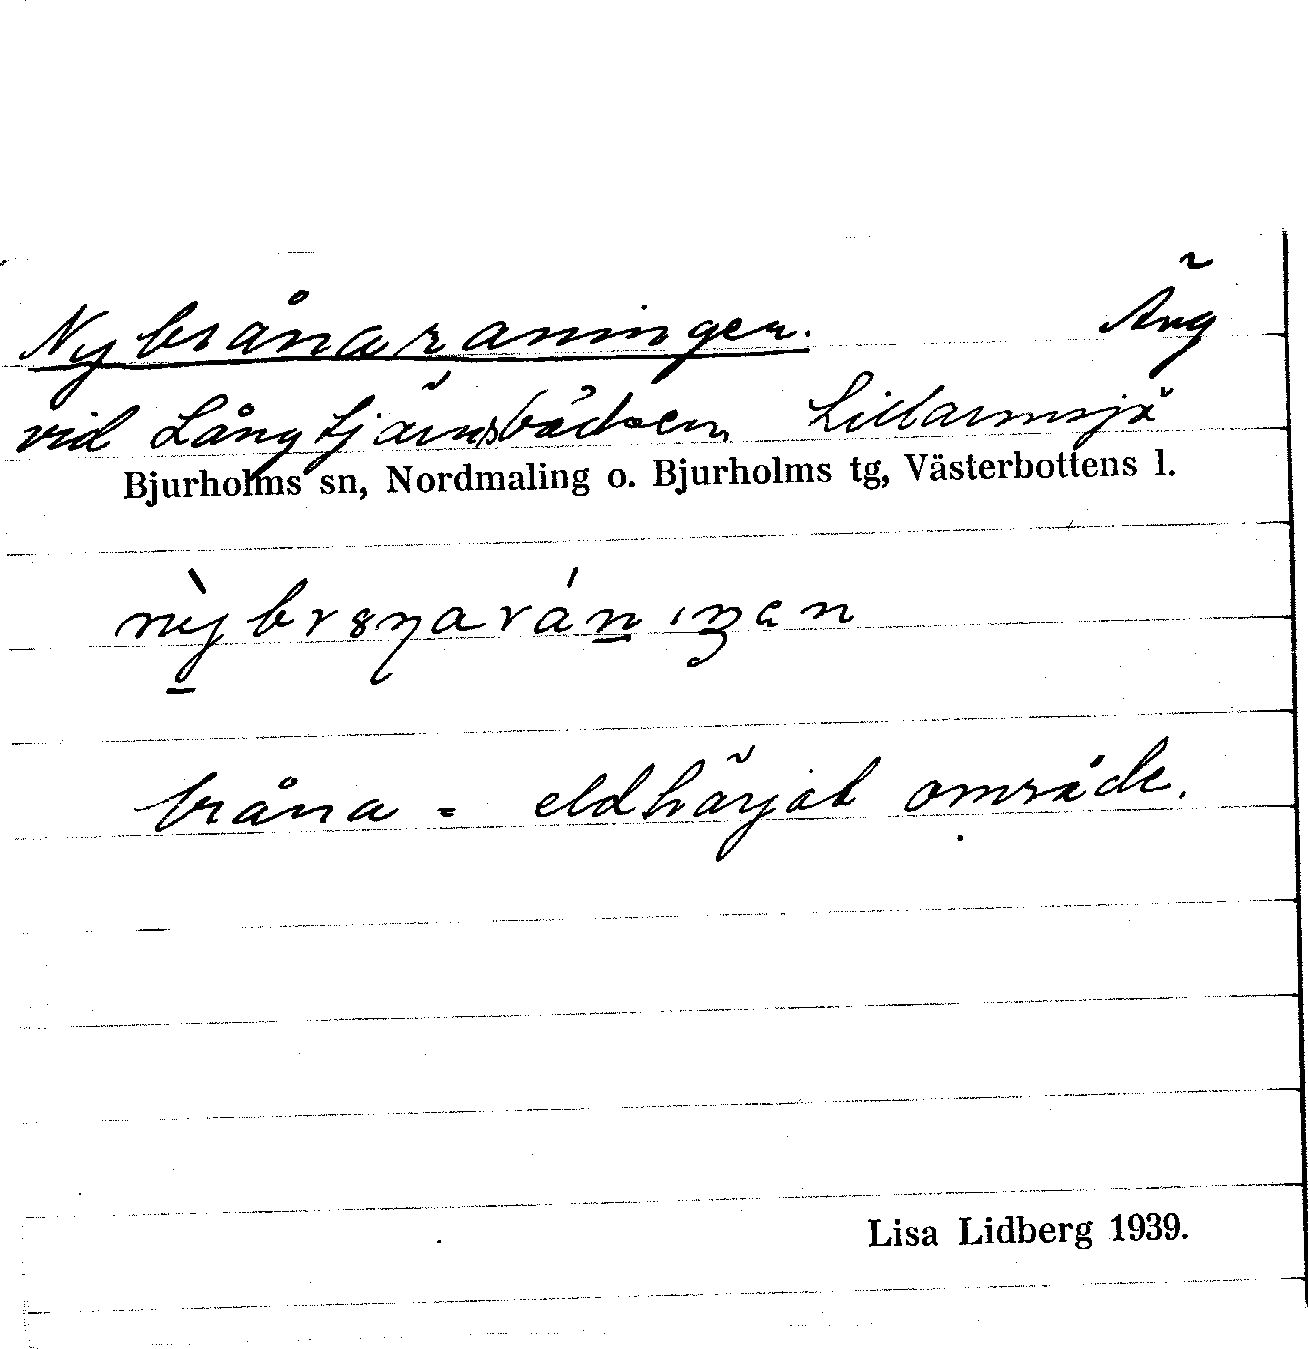 Nybrånaraningen. Äng
vid Långtjärnsbäcken Lillarmsjö
Bjurholms sn, Nordmaling o. Bjurholms tg, Västerbottens l.
bråna = eldhärjat område.
Lisa Lidberg 1939.